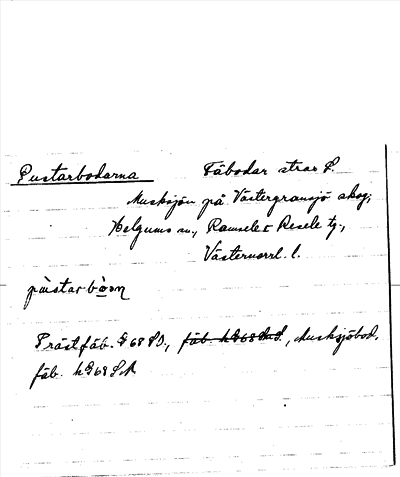 Pustarbodarna Fäbodar strax S.
Musksjön på Västergransjö skog,
Helgums sn, Ramsele o Resele tg.,
Västernorrl. l.
pùstarbò̀ɒn
Prästfäb. G 68 SO., fäb. hG68 SO., Musksjöbod.
fäb. hG68 SA